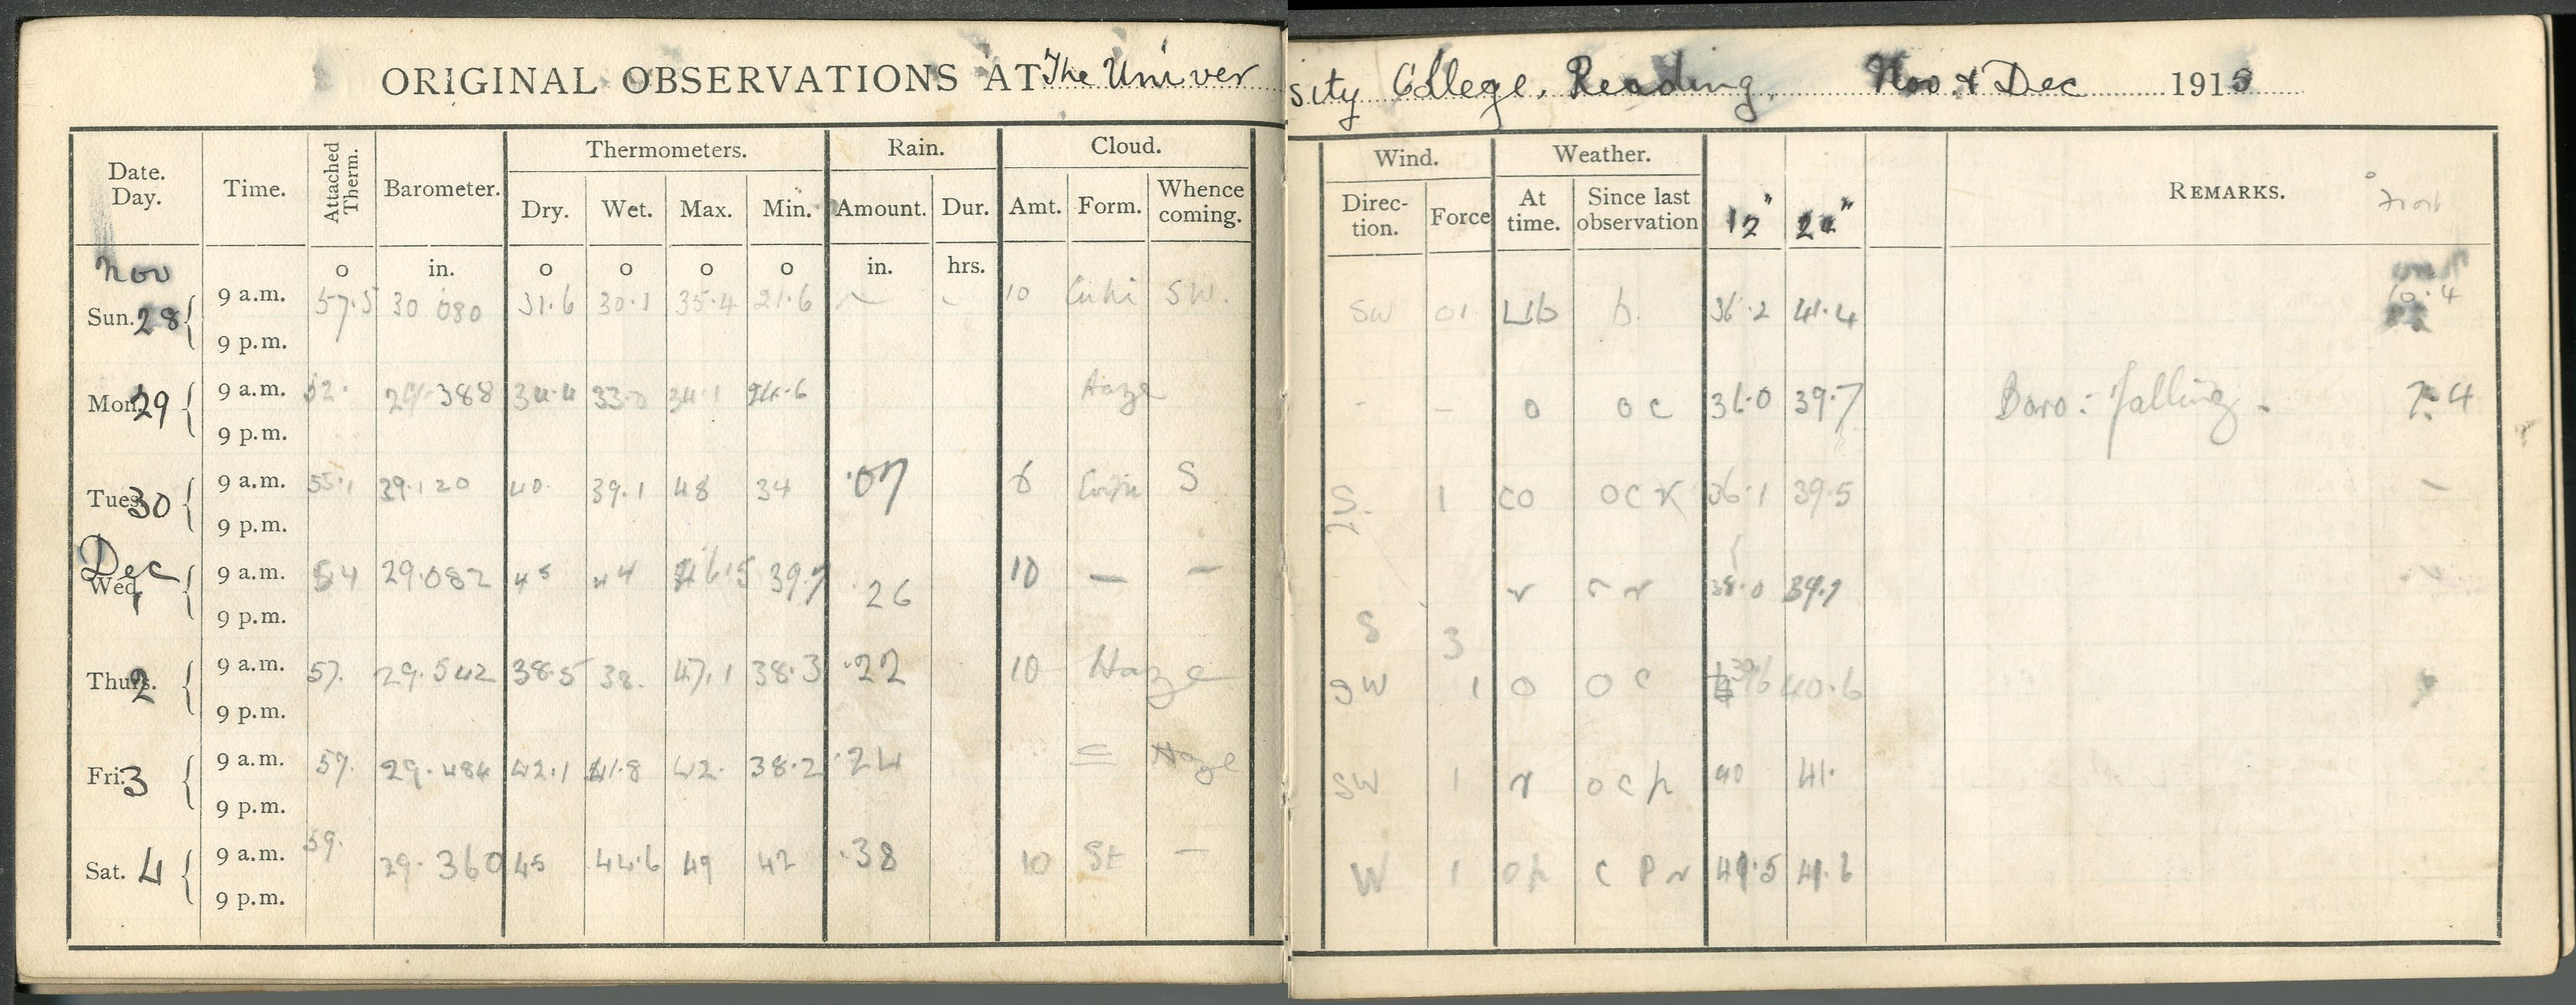 ORIGINAL OBSERVATIONS AT The University College, Reading, Nov. & Dec 1915
Date. Day. Time. Attached Therm. Barometer. Thermometers. Rain. Cloud. Wind. Weather. REMARKS.
Dry. Wet. Max. Min. Amount. Dur. Amt. Form. Whence coming. Direction. Force At time. Since last observation 12" 24"
Nov o in. o o o o in. hrs.
Sun. 28 9 a.m. 57.5 30 080 31.6 30.1 35.4 21.6 10 SW. SW 01 b. 36.2 41.4 10.4
9 p.m.
Mon. 29 9 a.m. 52. 388 34.4 33.0 34.1 24.6 Haze - - o o c 36.0 39.7 Baro: falling.
9 p.m.
Tues. 30 9 a.m. 55.1 29.120 40. 39.1 48 34 .07 S S. 1 co 36.1 39.5 -
9 p.m.
Dec
Wed. 1 9 a.m. 54 29.082 45 44 46.5 39.7 .26 10 - - S 3 r 38.0 39.7
9 p.m.
Thurs. 2 9 a.m. 57. 29.542 38.5 38. 47.1 38.3 .22 10 Haze SW 1 o o c 39.6 40.6
9 p.m.
Fri. 3 9 a.m. 57. 29.484 42.1 41.8 42. 38.2 .24 Haze SW 1 r o c p 40 41.
9 p.m.
Sat. 4 9 a.m. 59. 29.360 45 44.6 49 42 .38 10 St - W 1 op c p r 41.6
9 p.m.